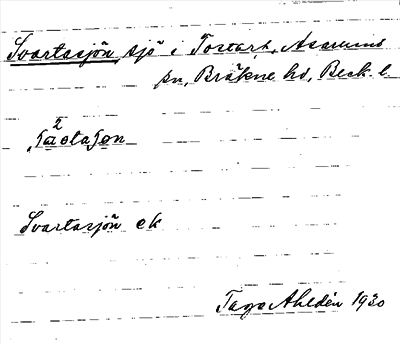 Svartasjön, sjö i Tostarp, Asarums
sn, Bräkne hd, Blek. l.
Svartasjön ek
Tage Ahldén 1930